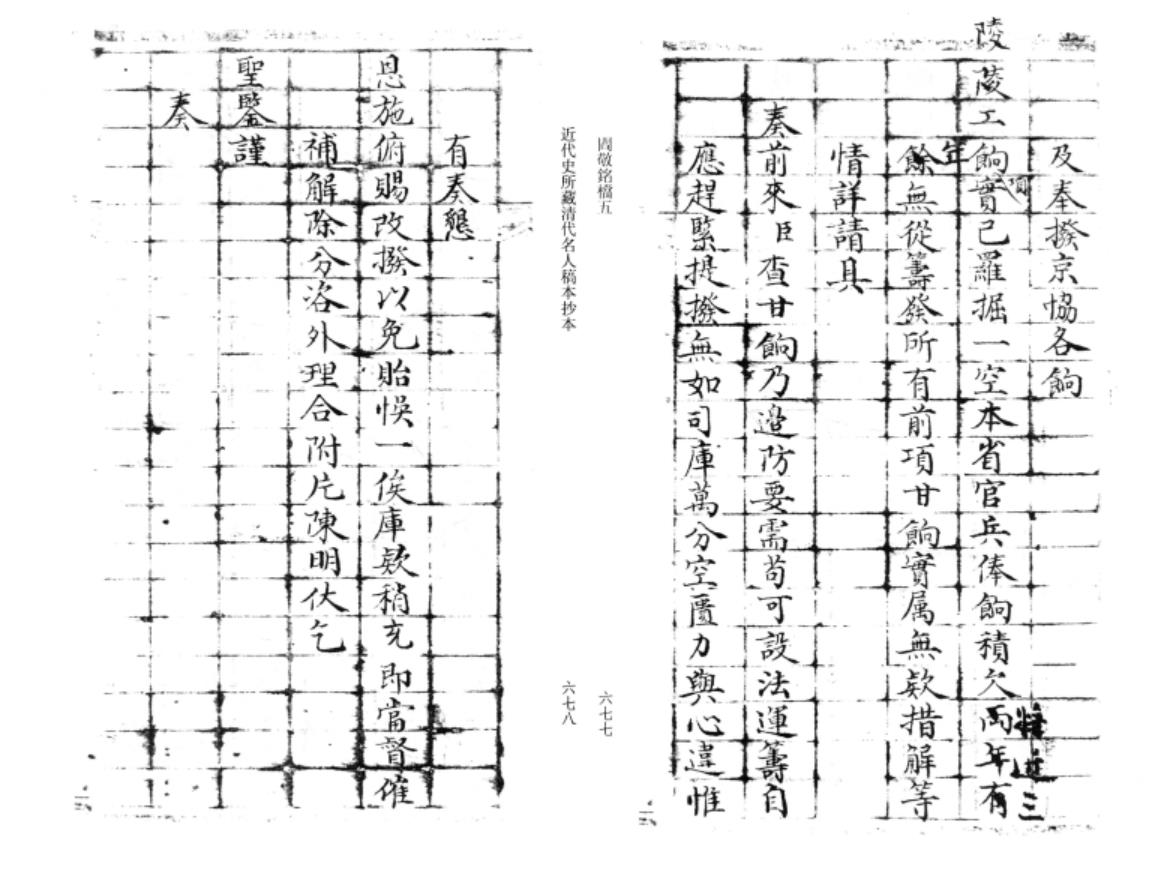 及奉撥京協各餉
陵陵工餉項實已羅掘一空本省官兵俸餉積欠兩年有
將近三
年
餘無從籌發所有前項甘餉實属無欵措解等
情詳請具
奏前來臣查甘餉乃邊防要需苟可設法運籌自
應趕緊提撥無如司庫萬分空匱力與心違惟
閻敬銘檔五
六七七
近代史所藏清代名人稿本抄本
六七八
有奏懇
恩施俯賜改撥以免貽悞一俟庫欵稍充即當督催
補解除分咨外理合附片陳明伏乞
聖鑒謹
奏